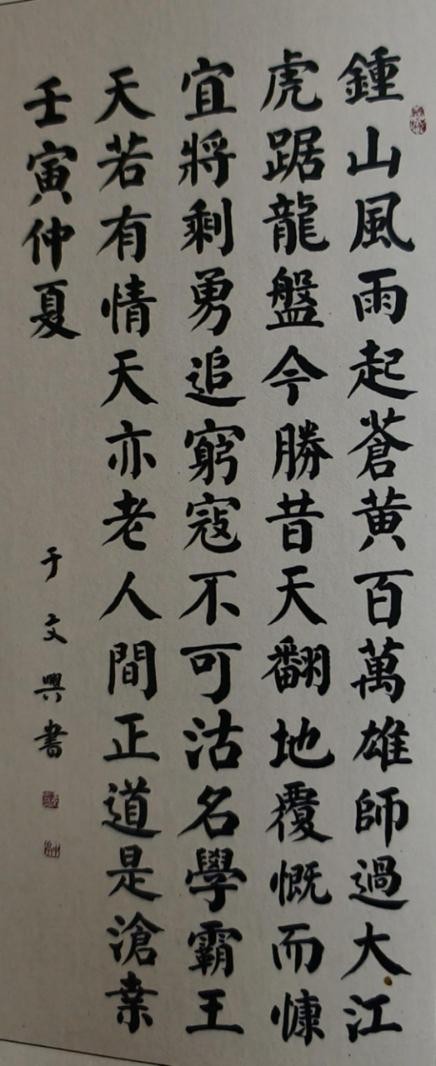 鍾山風雨起蒼黄百萬雄師過大江
虎踞龍盤今勝昔天翻地覆慨而慷
宜將剩勇追窮寇不可沽名學霸王
天若有情天亦老人間正道是滄桒
壬寅仲夏
于文興書